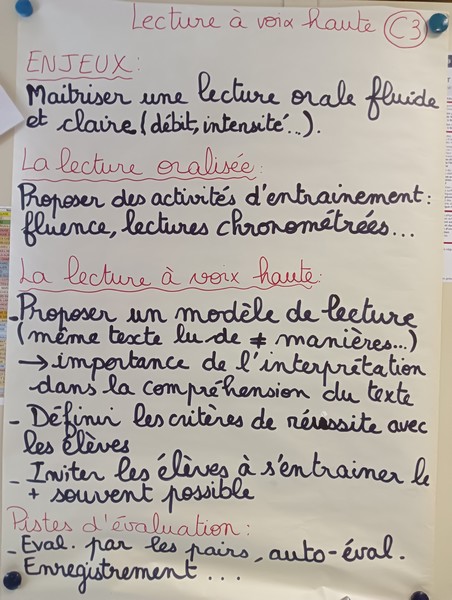 Lecture à voix haute C3
ENJEUX:
Maîtriser une lecture orale fluide
et claire (débit, intensité...).
La lecture oralisée:
Proposer des activités d'entrainement:
fluence, lectures chronométrées...
La lecture à voix haute:
- Proposer un modèle de lecture
(même texte lu de ≠ manières...)
→ importance de l'interprétation
dans la compréhension du texte
- Définir les critères de réussite avec
les élèves
- Inviter les élèves à s'entrainer le
+ souvent possible
Pistes d'évaluation:
- Eval. par les pairs, auto-éval.
Enregistrement ...